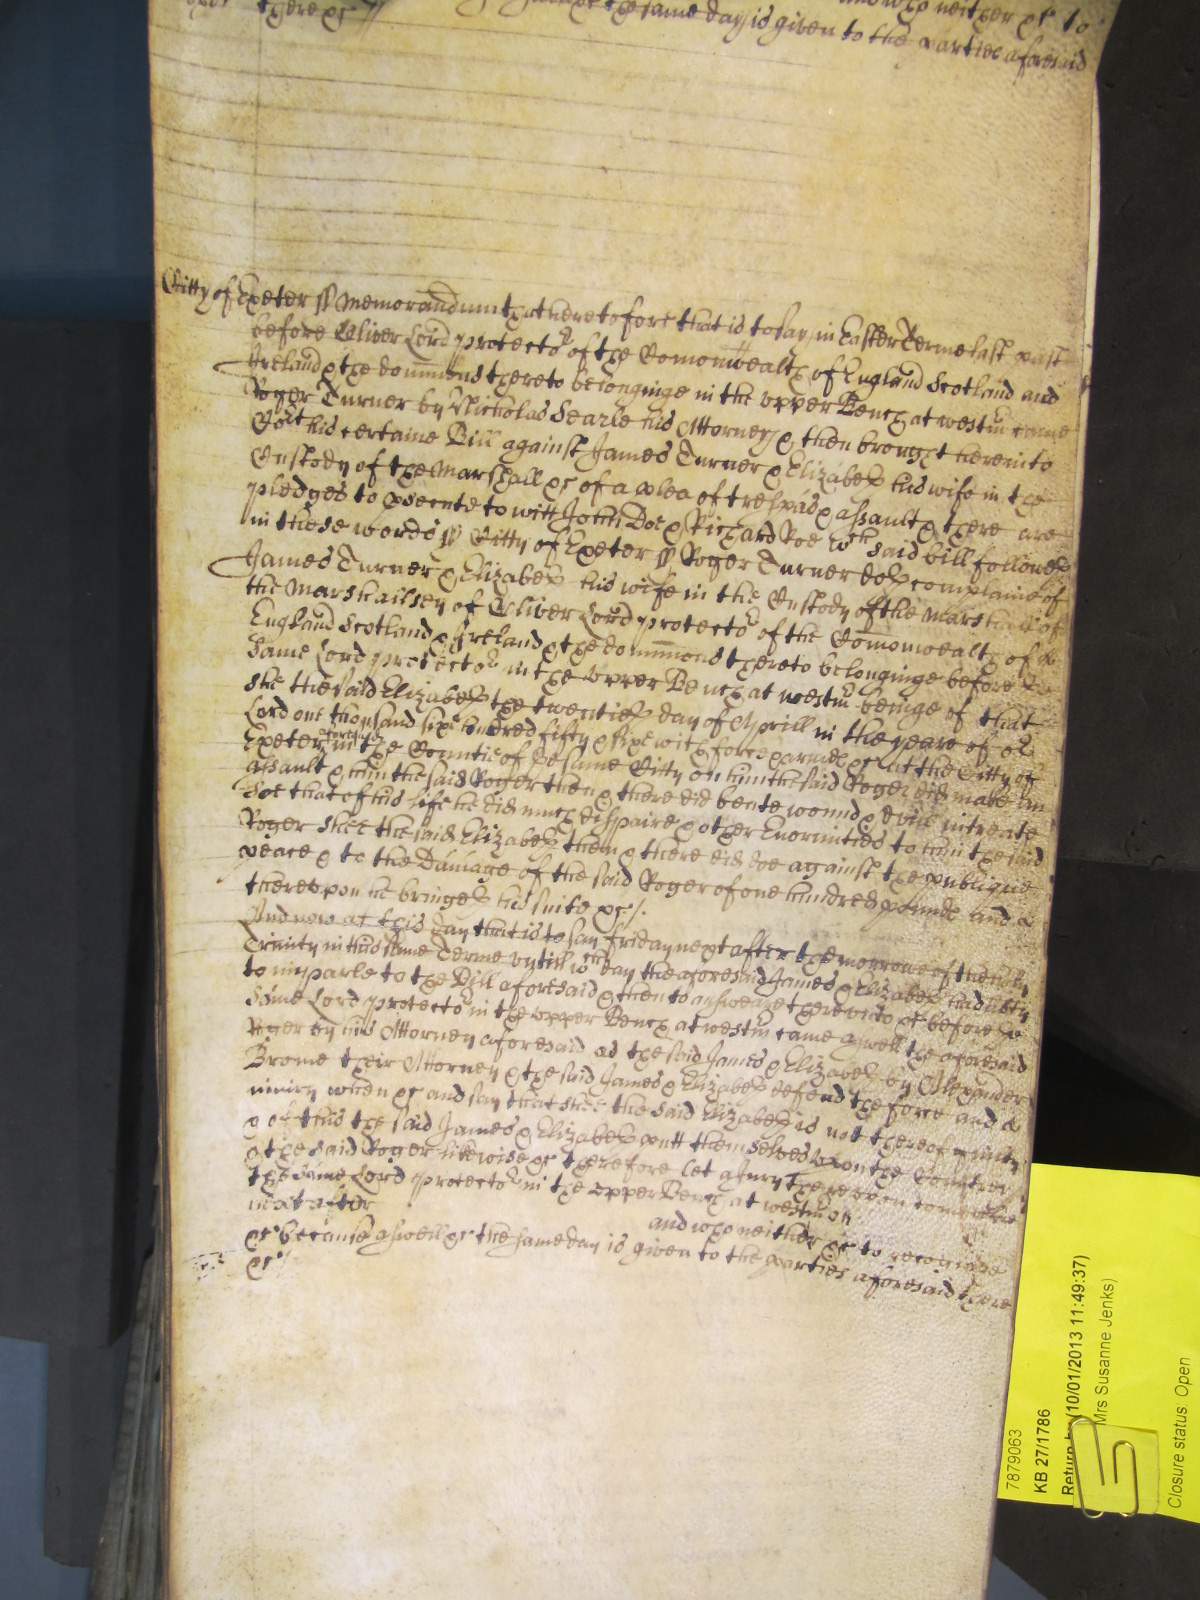 and who neither &c to
upon there &c // the same day is given to the parties aforesaid
Citty of Exeter ss Memorandum that heretofore that is to say in Easter Terme last past
before Oliver Lord protector of the Comonwealth of England Scotland and
Ireland & the dominions thereto belonginge in the upper Bench at westm came
Roger Turner by Nicholas Searle his Attorney & then brought here into
Court his certaine Bill against James Turner & Elizabeth his wife in the
Custody of the Marshall &c of a plea of trespas & assault & there are
pledges to psecute to witt John Doe & Richard Roe wch said bill followeth
in these words ss Citty of Exeter ss Roger Turner doth complaine of
James Turner & Elizabeth his wife in the Custody of the Marshall of
the Marshallsey of Oliver Lord protector of the Comonwealth of
England Scotland & Ireland & the dominions thereto belonginge before the
same Lord protector in the upper Bench at westm beinge of that
she the said Elizabeth the twentieth day of Aprill in the yeare of or
Lord one thousand sixe hundred fifty & sixe with force & armes &c at the Citty of
Exeter aforesaid in the Countie of the same Citty on him the said Roger did make an
assault & him the said Roger then & there did beate wound & evill intreate
soe that of his life he did much dispaire & other Enormities to him the said
Roger shee the said Elizabeth then & there did doe against the publique
peace & to the Damage of the said Roger of one hundred pounds and
thereupon he bringeth his suite &c /.
And now at this day that is to say friday next after the morrowe of the holy
Trinity in this same Terme untill wch day the aforesaid James & Elizabeth had liberty
to imparle to the Bill aforesaid & then to answere thereunto &c before the
same Lord protector in the upper Bench at westm came aswell the aforesaid
Roger by his Attorney aforesaid as the said James & Elizabeth by Alexander
Brome their Attorney & the said James & Elizabeth defend the force and
iniury when &c and say that shee the said Elizabeth is not thereof guilty
& of this the said James & Elizabeth putt themselves upon the Countrey
& the said Roger likewise &c therefore let a Jury thereupon come before
the same Lord protector in the upper Bench at westm on
next after and who neither &c to recognize
&c because aswell &c the same day is given to the parties aforesaid there
&c /
7879063
KB 27/1786
Return by (10/01/2013 11:49:37)
Mrs Susanne Jenks)
Closure status: Open